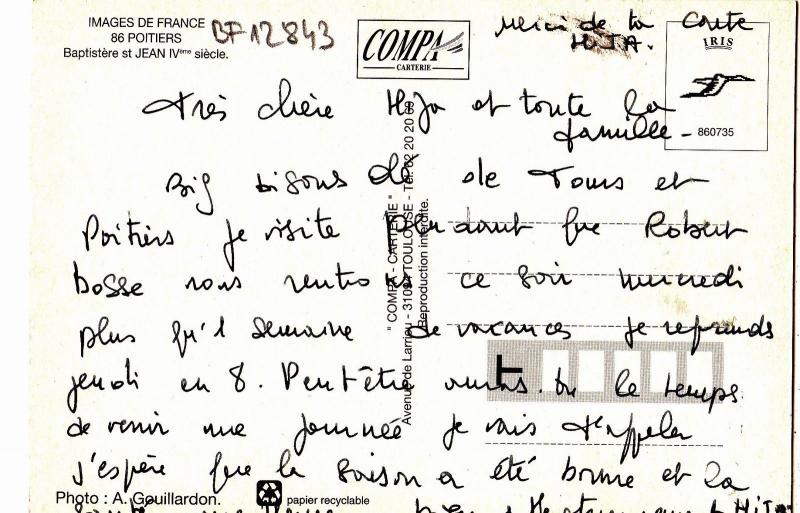 IMAGES DE FRANCE
86 POITIERS
Baptistère st JEAN IVème siècle.
BF12843
COMPA
CARTERIE
Merci de ta carte
HIJA.
IRIS
860735
Très chère Hija et toute la
famille -
Big bisous de de Tours et
Poitiers je visite pendant que Robert
bosse nous rentrons ce soir mercredi
plus qu'1 semaine de vacances je reprends
jeudi en 8. Peut être auras tu le temps
de venir une journée je vais t'appeler
j'espère que la saison a été bonne et la
" COMPA - CARTERIE "
Avenue de Larrieu - TOULOUSE - Tél. 20 20
Reproduction interdite.
Photo : A. Gouillardon.
papier recyclable